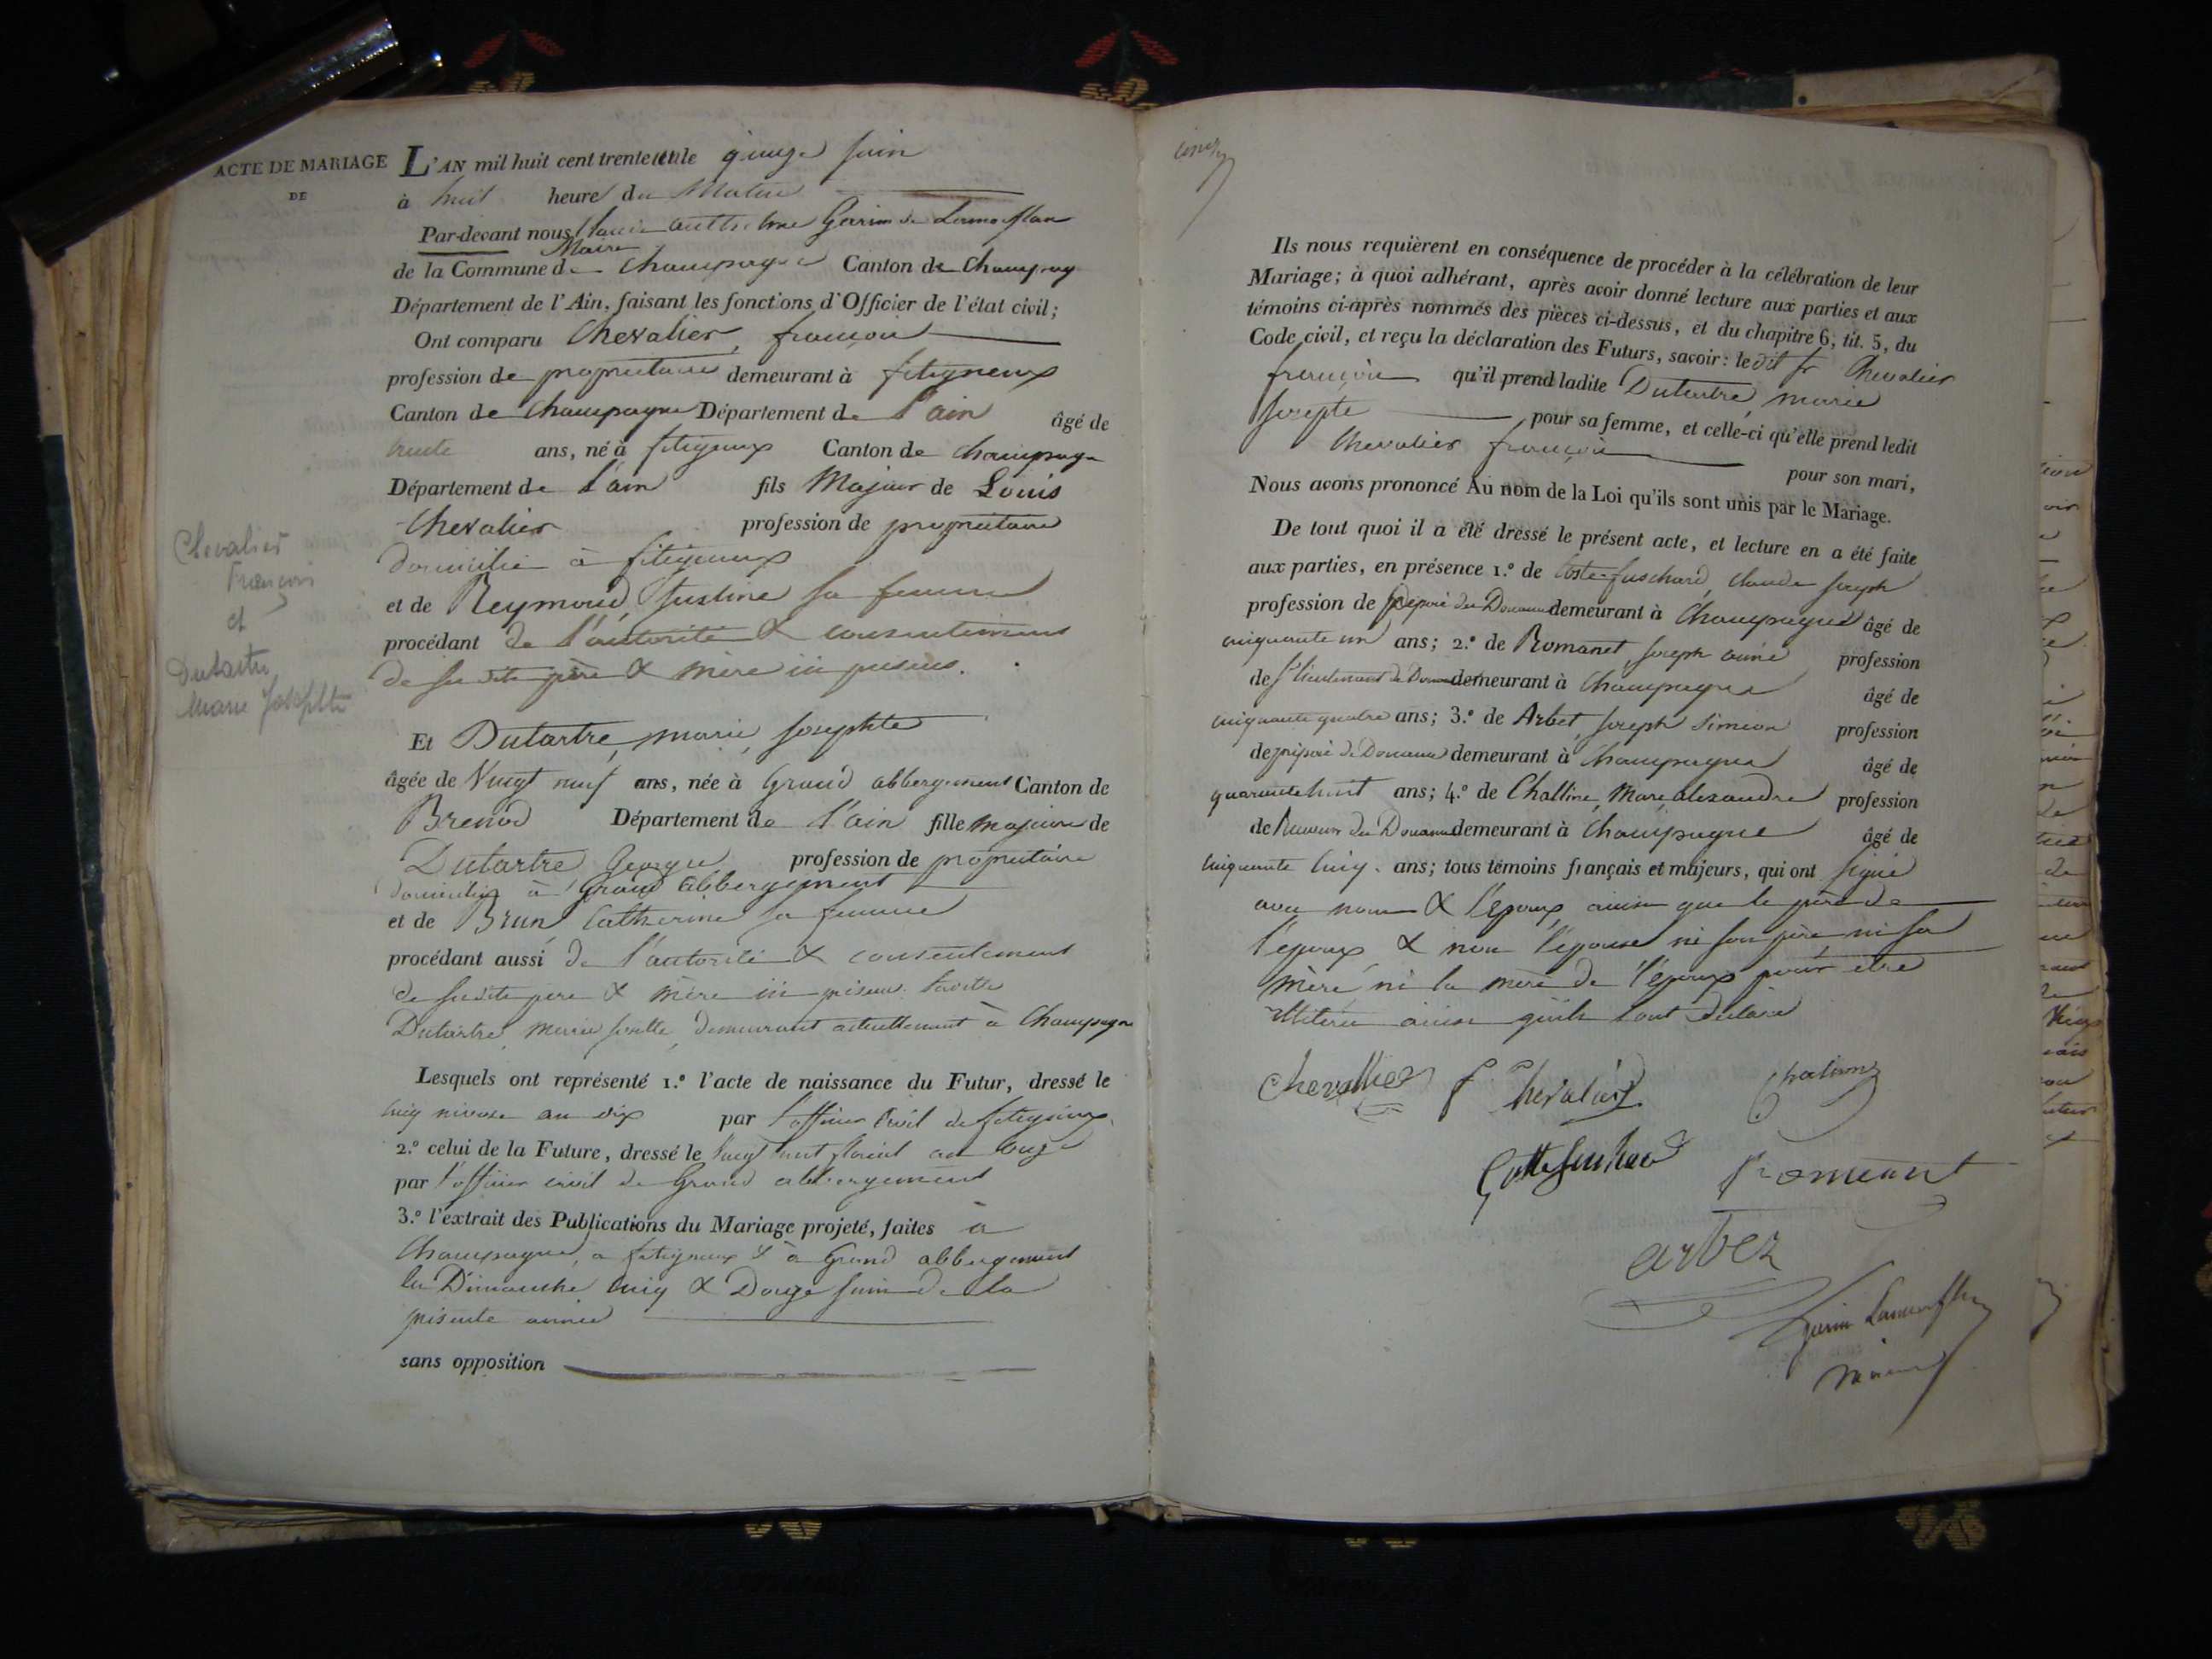 ACTE DE MARIAGE
DE
Chevalier
François
et
Dutartre
Marie Josephte
L'AN mil huit cent trente et le quinze juin
à huit heures du Matin
Par-devant nous anthelme Guérin de
Maire
de la Commune de Champagne Canton de Champag
Département de l'Ain, faisant les fonctions d'Officier de l'état civil;
Ont comparu Chevalier, françois
profession de proprietaire demeurant à fitignieux
Canton de Champagne Département de l'ain âgé de
trente ans, né à fitigneux Canton de Champagne
Département de l'ain fils Majeur de Louis
Chevalier profession de proprietaire
domicilié à fitigneux
et de Reymond, Justine sa femme
procédant de l'autorité & consentement
de ses dits père & mère ici presens.
Et Dutartre, marie, josephte
âgée de Vingt neuf ans, née à Grand abbergement Canton de
Brenod Département de l'ain fille majeure de
Dutartre, George profession de proprietaire
domicilié à Grand abbergement
et de Brun Catherine sa femme
procédant aussi de l'autorité & consentement
de ses dits père & mère ici présens. Laditte
Dutartre, Marie demeurant actuellement à Champagne
Lesquels ont représenté 1.º l'acte de naissance du Futur, dressé le
cinq nivose an dix par l'officier Civil de fitigneux
2.º celui de la Future, dressé le vingt huit floréal an onze
par l'officier civil de Grand abbergement
3.º l'extrait des Publications du Mariage projeté, faites à
Champagne, à fitigneux & à Grand abbergement
les Dimanche cinq & Douze juin de la
présente année
sans opposition
Ils nous requièrent en conséquence de procéder à la célébration de leur
Mariage; à quoi adhérant, après avoir donné lecture aux parties et aux
témoins ci-après nommés des pièces ci-dessus, et du chapitre 6, tit. 5, du
Code civil, et reçu la déclaration des Futurs, savoir: ledit Sr Chevalier
françois qu'il prend ladite Dutartre, marie
josepte pour sa femme, et celle-ci qu'elle prend ledit
Chevalier françois pour son mari,
Nous avons prononcé Au nom de la Loi qu'ils sont unis par le Mariage.
De tout quoi il a été dressé le présent acte, et lecture en a été faite
aux parties, en présence 1.º de Claude joseph
profession de préposé des Douanes demeurant à Champagne âgé de
cinquante un ans; 2.º de Romanet, joseph aimé profession
de Sr lieutenant de Douanes demeurant à Champagne âgé de
cinquante quatre ans; 3.º de Arbet, joseph simeon profession
de préposé de Douanes demeurant à Champagne âgé de
quarante huit ans; 4.º de Challine, Marc alexandre profession
de Receveur des Douanes demeurant à Champagne âgé de
cinquante cinq. ans; tous témoins français et majeurs, qui ont signé
avec nous & l'époux ainsi que le père de
l'époux & non l'épouse ni son père ni sa
mère ni la mère de l'époux pour être
illitérés ainsi qu'ils l'ont déclaré
Chevallier f Chevalier
Romanet
arbez
Maire